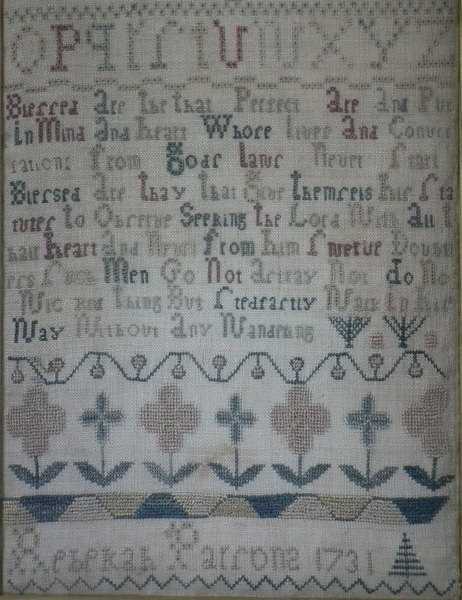 O P q r ſ t U W X Y Z
Bleſſed are the that Perfect are and Pur
in Mind and heart Whoſe lives and Conver
ſations from Gods laws Never ſtart
Bleſſed are thay that Give his ſta
tutes to Obſerve Seeking the Lord With all t
hair heart and Never from him ſwerve Doubtl
eſs ſuch Men Go Not aſtray Nor do No
Wic ked thing But ſtedfaſtly Walk in his
Way Without any Wandering
Rebekah Parſons 1731